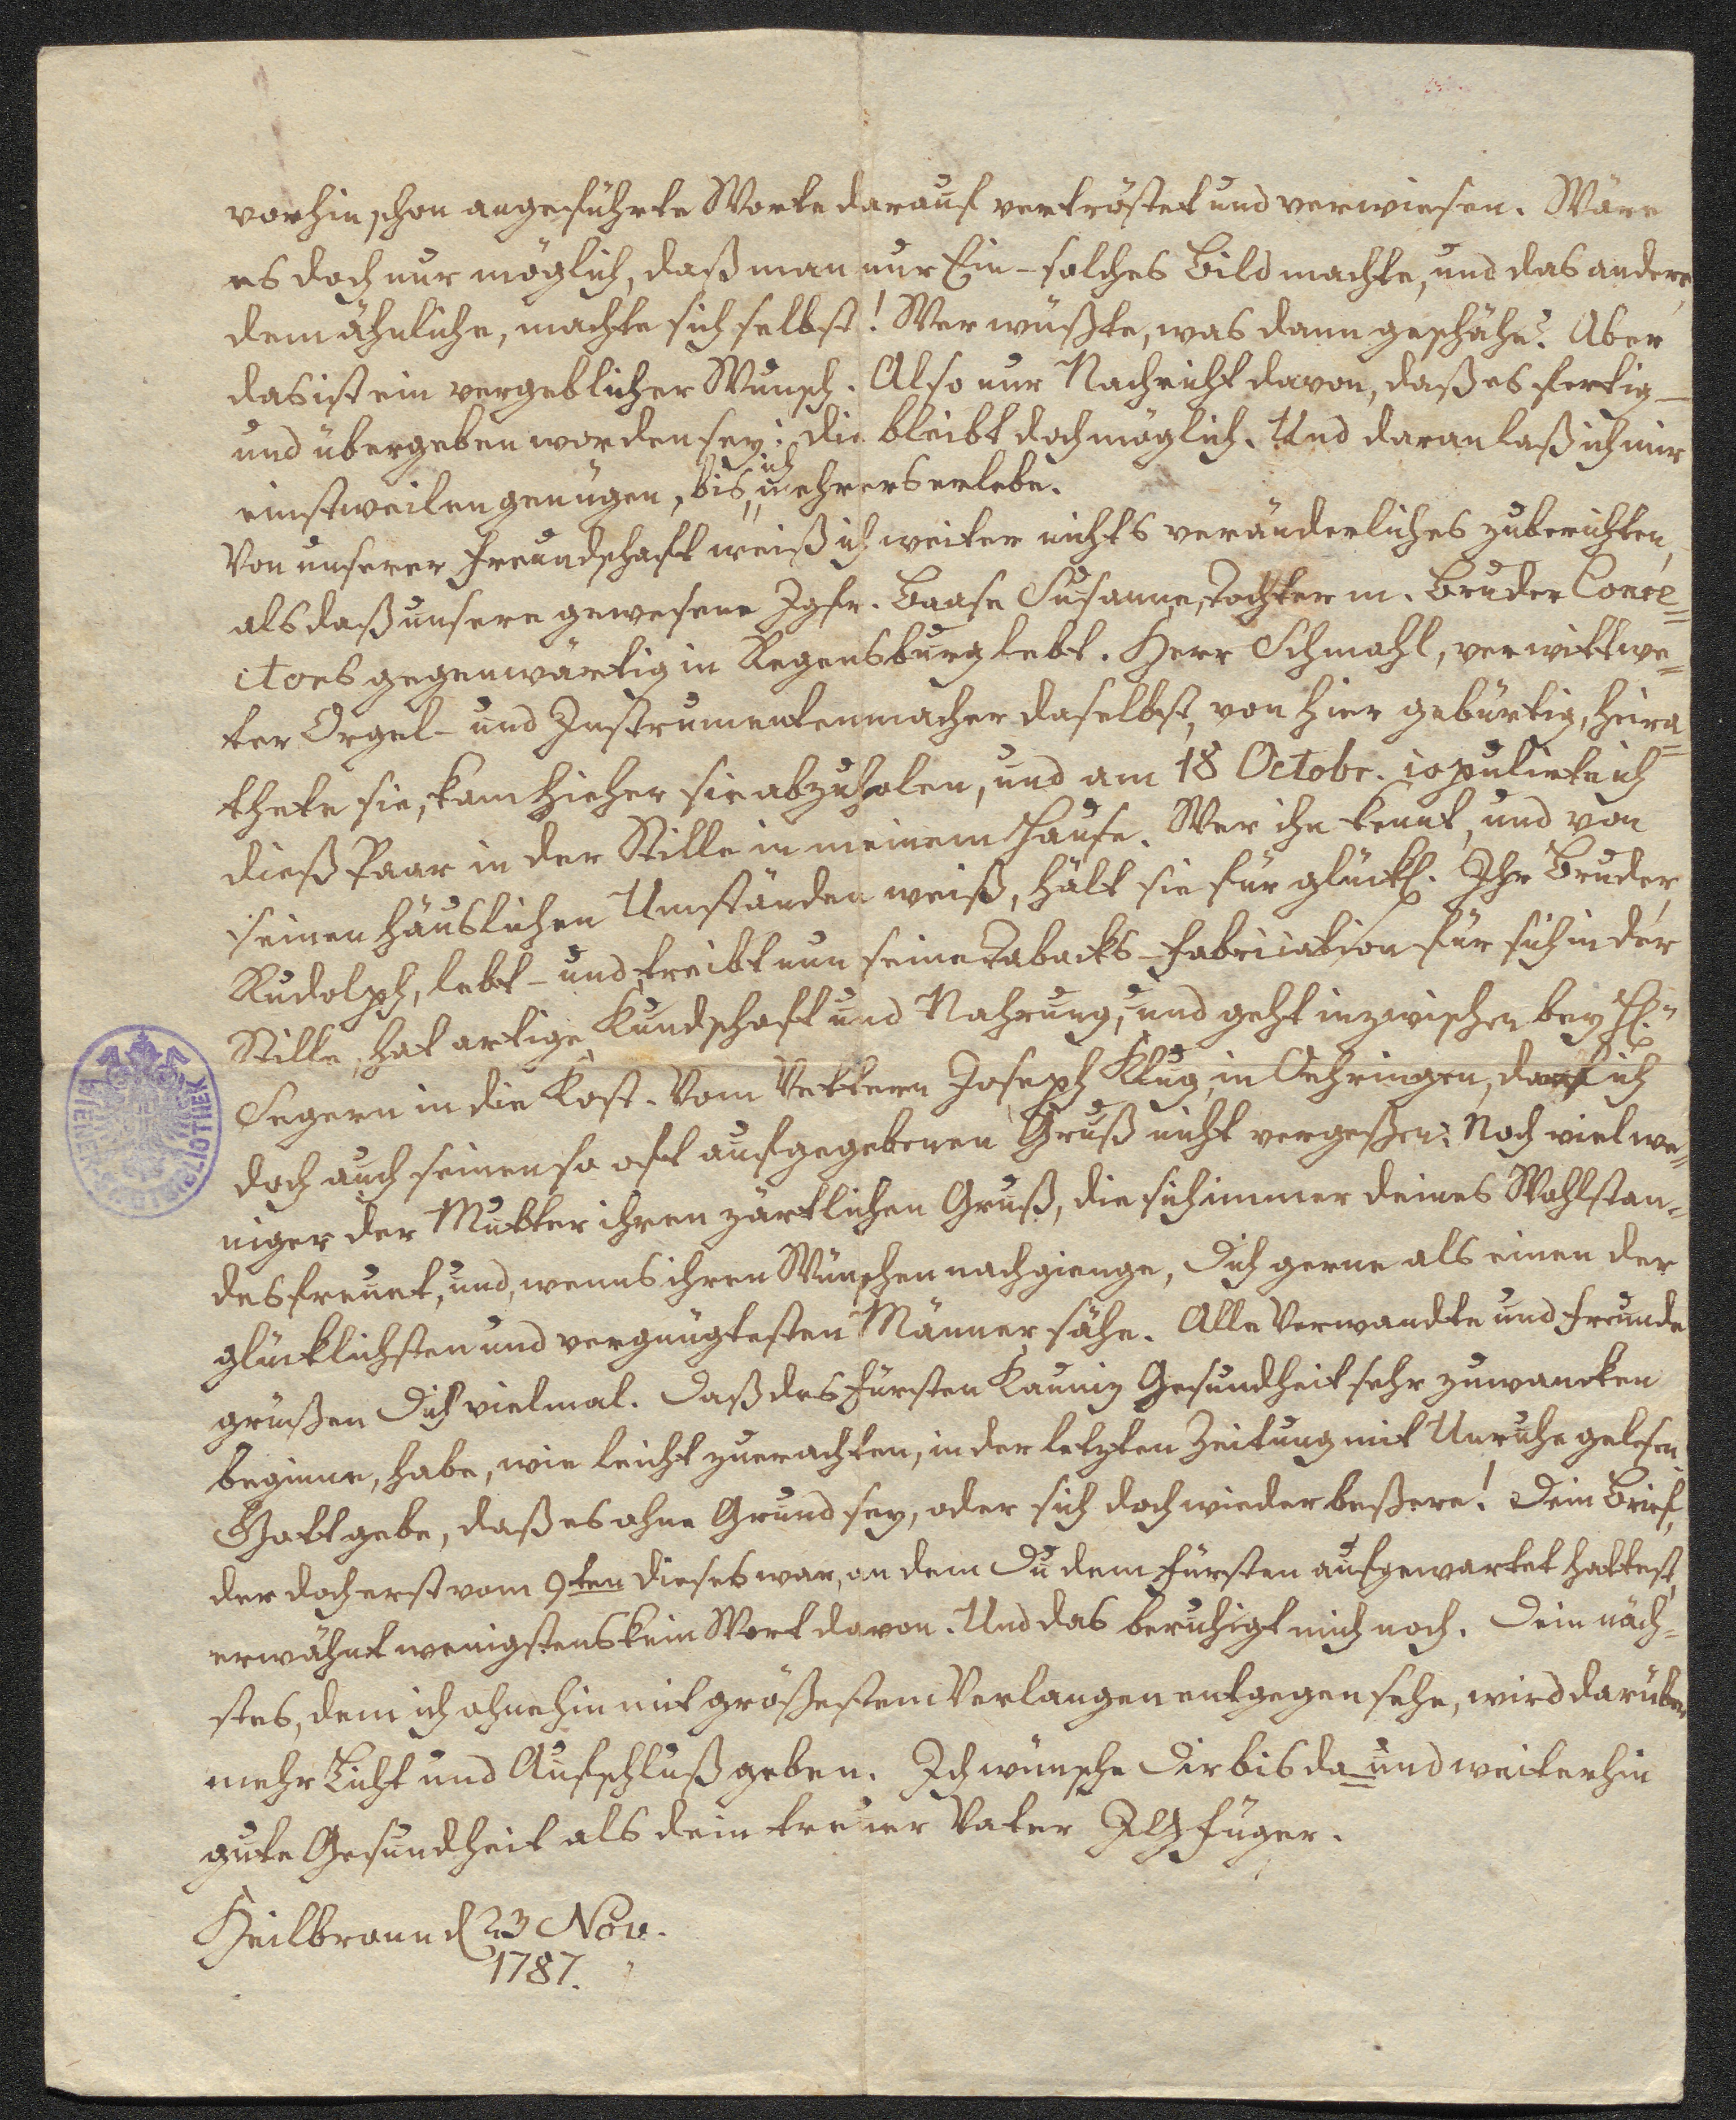 vorhin schon angeführte Worte darauf vertröstet und verwiesen. Wäre
es doch nur möglich, daß man nur Ein- solches Bild machte, und das andere,
dem ähnliche, machte sich selbst! Wer wüßte, was dann geschähe? Aber
das ist ein vergeblicher Wunsch. Also nur Nachricht davon, daß es fertig-
und übergeben worden sey: die bleibt doch möglich. Und daran laß ich mir
einstweilen genügen, bis ich mehrers erlebe.
Von unserer Freundschaft weiß ich weiter nichts veränderliches zu berichten,
als daß unsere gewesene Jgfr. Baase Susanne, Tochter m. Bruder Conre=
ctors gegenwärtig in Regensburg lebt. Herr Schmahl, verwittwe=
ter Orgel- und Instrumentenmacher daselbst, von hier gebürtig, heira=
thete sie, kam hieher sie abzuholen, und am 18 Octobr. copulirte ich
dieß Paar in der Stille in meinem Hause. Wer ihn kennt, und von
seinen häuslichen Umständen weiß, hält sie für glückl. Ihr Bruder,
Rudolph, lebt- und treibt nun seine Tabacks-Fabrication für sich in der
Stille, hat artige Kundschaft und Nahrung, und geht inzwischen bey H.
Segern in die Kost. Vom Vettern Joseph Klug, in Oehringen, darf ich
doch auch seinen so oft aufgegebenen Gruß nicht vergeßen: Noch viel we=
niger der Mutter ihren zärtlichen Gruß, die sich immer deines Wohlstan=
des freuet, und, wenns ihren Wünschen nachgienge, Dich gerne als einen der
glücklichsten und vergnügtesten Männer sähe. Alle Verwandte und Freunde
grüßen Dich vielmal. Daß des Fürsten Kauniz Gesundheit sehr zu wancken
beginne, habe, wie leicht zu erachten, in der letzten Zeitung mit Unruhe gelesen.
Gott gebe, daß es ohne Grund sey, oder sich doch wieder beßere! Dein Brief,
der doch erst vom 9ten dieses war, an dem Du dem Fürsten aufgewartet hattest,
erwähnt wenigstens kein Wort davon. Und das beruhigt mich noch. Dein näch=
stes, dem ich ohnehin mit größestem Verlangen entgegen sehe, wird darüber
mehr Licht und Aufschluß geben. Ich wünsche Dir bis da- und weiterhin
gute Gesundheit als dein treuer Vater JGFüger.
Heilbronn d 23 Nov.
1787.
WIENER STADTBIBLIOTHEK